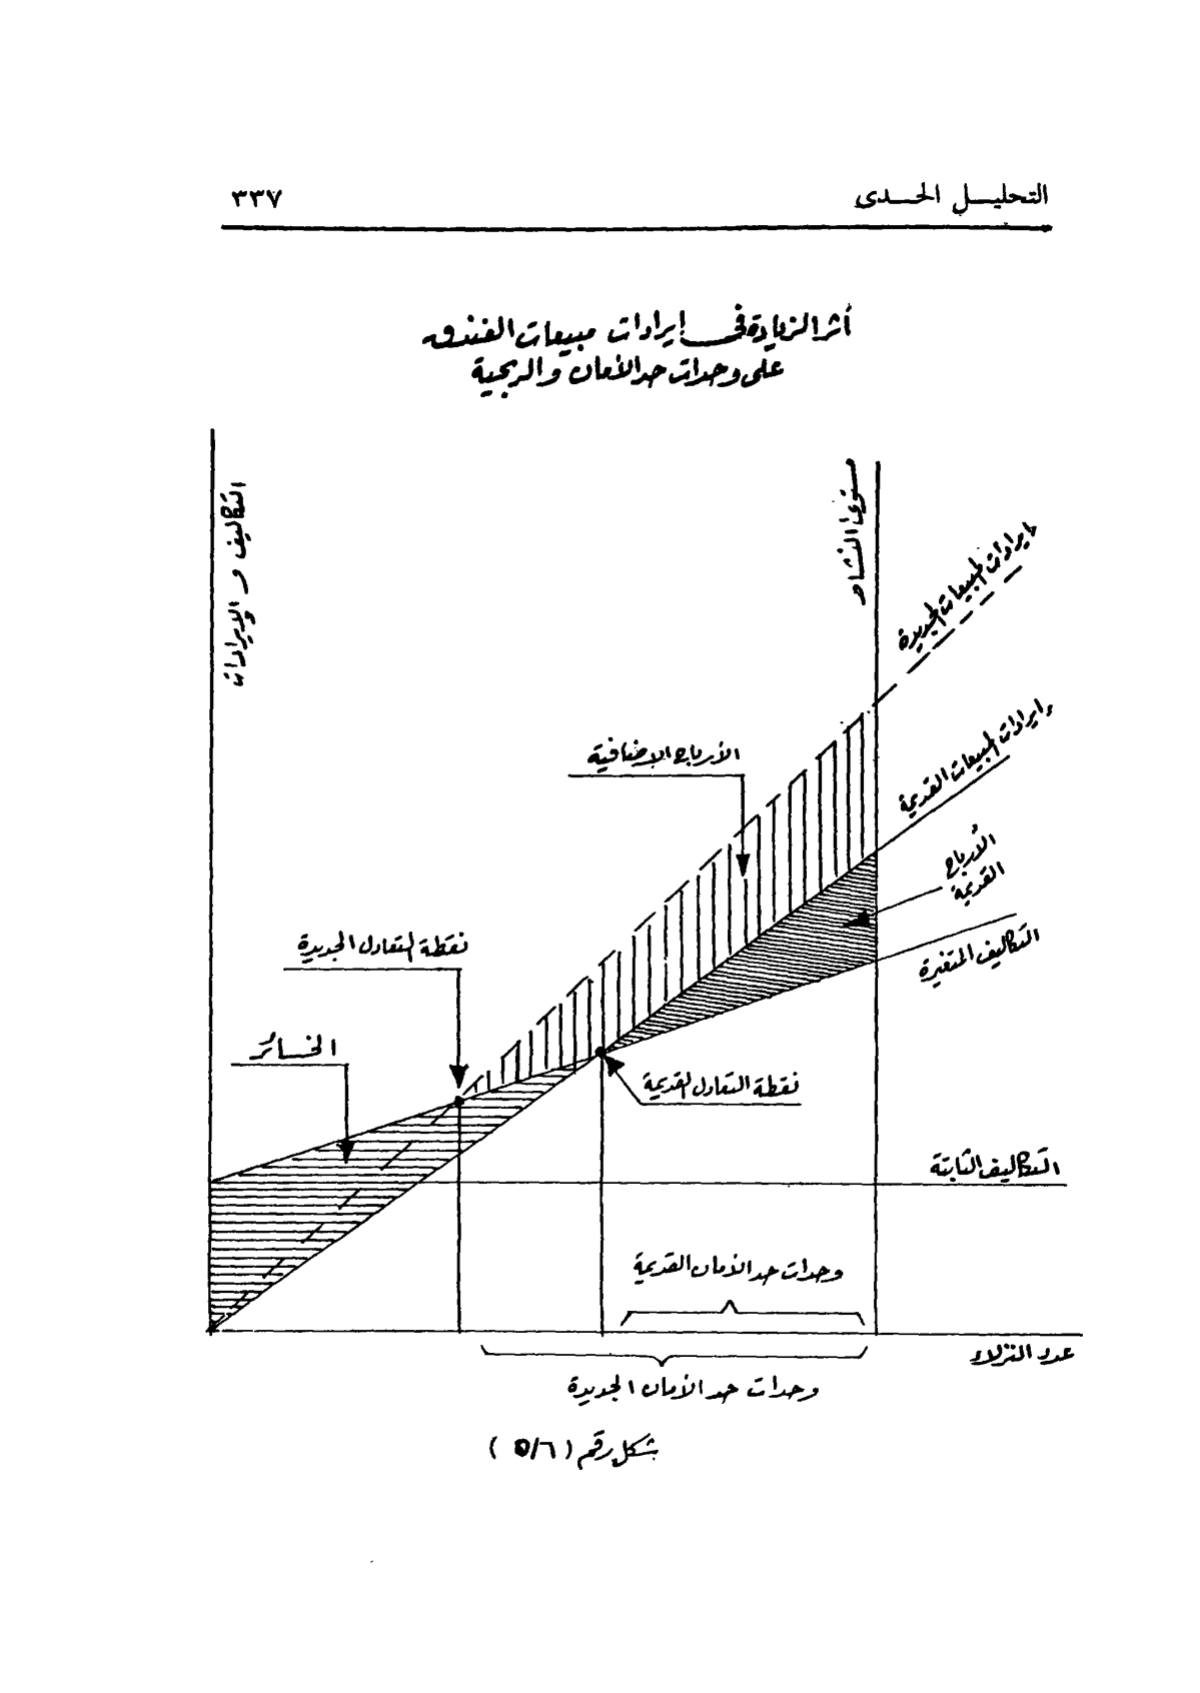 التحليل الحدى
٣٣٧
أثر الزيادة فى إيرادات مبيعات الفندق
على وحدات حد الأمان والربحية
التكاليف و الإيرادات
مستوى النشاط
إيرادات المبيعات الجديدة
إيرادات المبيعات القديمة
الأرباح الإضافية
الأرباح
القديمة
التكاليف المتغيرة
نقطة التعادل الجديدة
الخسائر
نقطة التعادل القديمة
التكاليف الثابتة
وحدات حد الأمان القديمة
عدد النزلاء
وحدات حد الأمان الجديدة
شكل رقم (٥/٦)